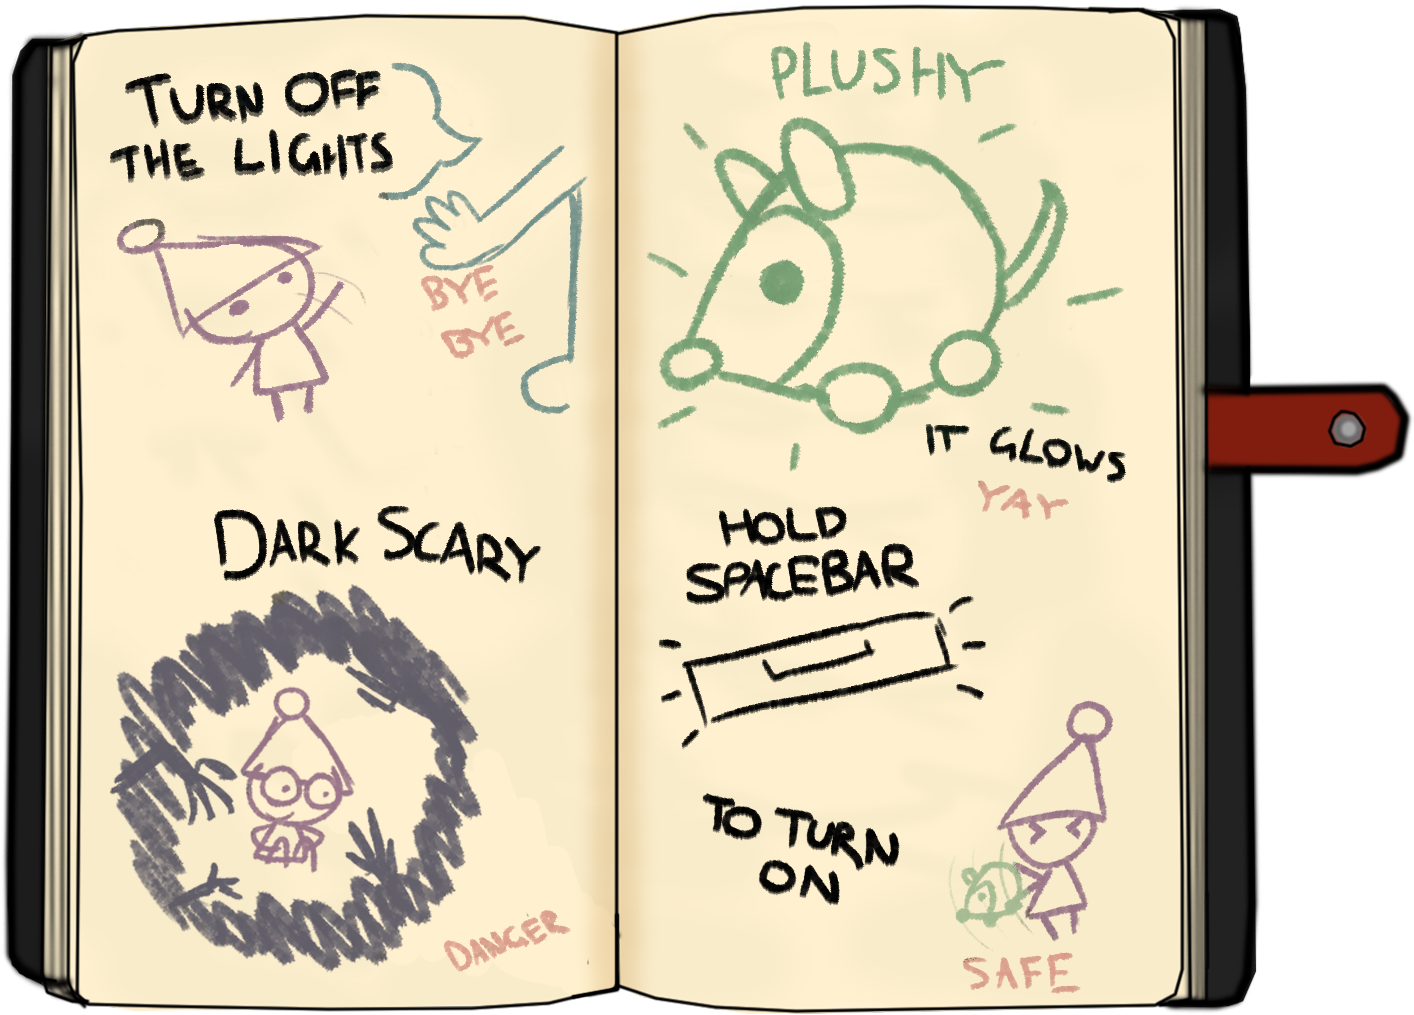 TURN OFF
THE LIGHTS
BYE
BYE
DARK SCARY
DANGER
PLUSHY
IT GLOWS
YAY
HOLD
SPACEBAR
TO TURN
ON
SAFE